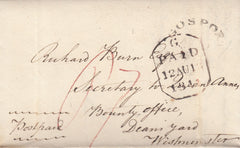 GOSPORT
G
PAID
12 AU 12
184
Richard Burn
Secretary to Queen Annes
Bounty Office,
Deans Yard
Westminster
Postpaid